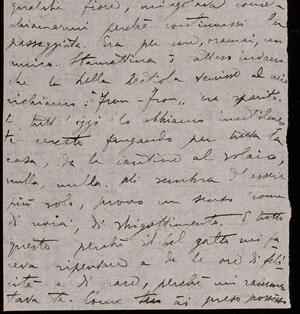 qualche fiore, miagolava come a
chiamarmi perchè continuassi la
passeggiata. Era per me, oramai, un
amico. Stamattina ò atteso indarno
che la bella bestiola venisse al mio
richiamo: "Frou-Frou" era sparita.
E tutt'oggi lo abbiamo inutilmen-
te cercato frugando per tutta la
casa, da le cantine al solaio,
nulla, nulla. Mi sembra d'essere
più solo, provo un senso come
di noia, di sbigottimento. E tutto
questo perchè il bel gatto mi fa-
ceva ripensare a de le ore di feli-
cità e di pace, perchè mi rammen-
tava te. Come ti ài preso possesso